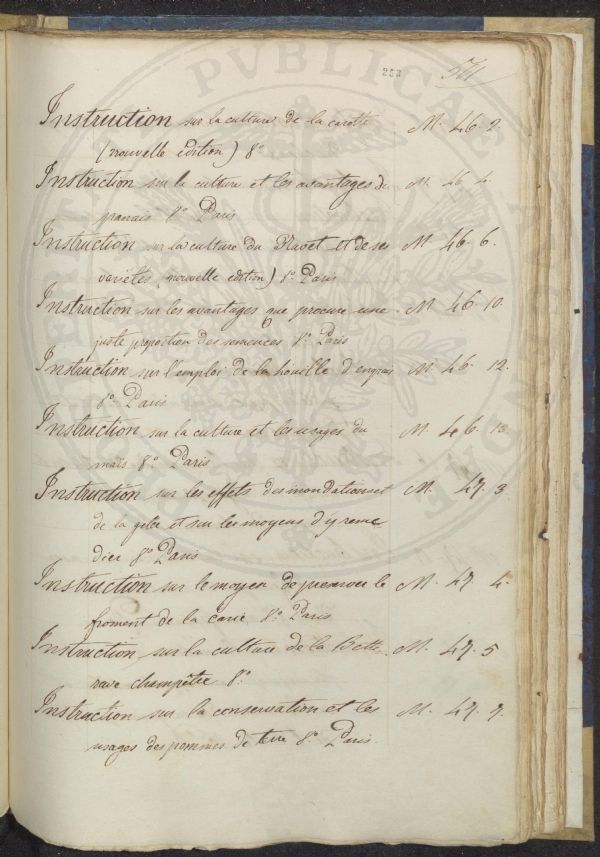 283
Instruction sur la culture de la carotte M. 46. 2.
(nouvelle édition) 8°
Instruction sur la culture et les avantages du M. 46. 4.
panais 8° Paris
Instruction sur la culture du Navet et de ses M. 46. 6.
variétés (nouvelle édition) 8° Paris
Instruction sur les avantages que procure une M. 46. 10.
juste proportion des semences 8° Paris
Instruction sur l'emploi de la houille d'engrais M. 46. 12.
8° Paris
Instruction sur la culture et les usages du M. 46. 13.
maïs 8° Paris
Instruction sur les effets des inondations et M. 47. 3.
de la gelée et sur les moyens d'y reme
dier 8° Paris
Instruction sur le moyen de preserver le M. 47. 4.
froment de la carie 8° Paris
Instruction sur la culture de la Bette M. 47. 5
rave champêtre 8°
Instruction sur la conservation et les M. 47. 7.
usages des pommes de terre 8° Paris.